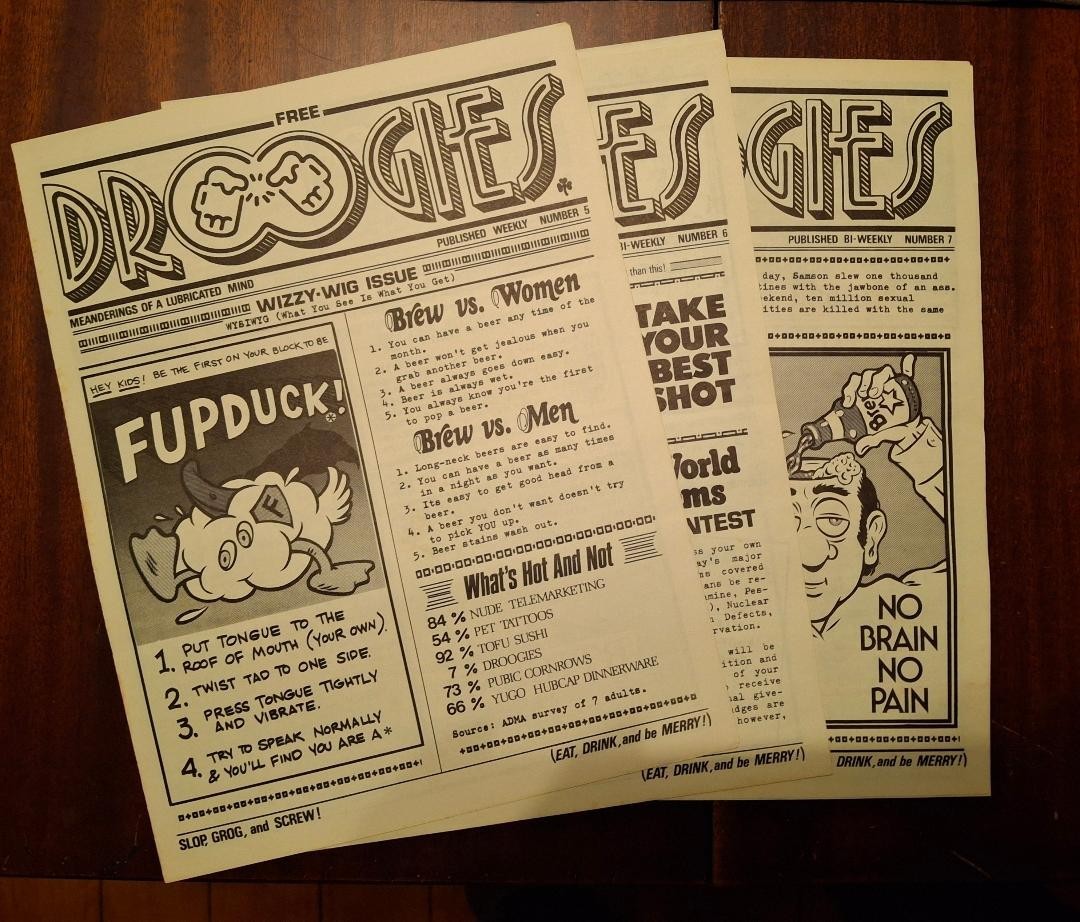 FREE
DROOGIES
PUBLISHED WEEKLY NUMBER 5
MEANDERINGS OF A LUBRICATED MIND
WIZZY-WIG ISSUE
WYSIWYG (What You See Is What You Get)
HEY KIDS! BE THE FIRST ON YOUR BLOCK TO BE
FUPDUCK!
*
F
1. PUT TONGUE TO THE
ROOF OF MOUTH (YOUR OWN).
2. TWIST TAD TO ONE SIDE.
3. PRESS TONGUE TIGHTLY
AND VIBRATE.
4. TRY TO SPEAK NORMALLY
& YOU'LL FIND YOU ARE A*
Brew vs. Women
1. You can have a beer any time of the
month.
2. A beer won't get jealous when you
grab another beer.
3. A beer always goes down easy.
4. Beer is always wet.
5. You always know you're the first
to pop a beer.
Brew vs. Men
1. Long-neck beers are easy to find.
2. You can have a beer as many times
in a night as you want.
3. Its easy to get good head from a
beer.
4. A beer you don't want doesn't try
to pick YOU up.
5. Beer stains wash out.
What's Hot And Not
84 % NUDE TELEMARKETING
54 % PET TATTOOS
92 % TOFU SUSHI
7 % DROOGIES
73 % PUBIC CORNROWS
66 % YUGO HUBCAP DINNERWARE
Source: ADMA survey of 7 adults.
(EAT, DRINK, and be MERRY!)
SLOP, GROG, and SCREW!
IES
BI-WEEKLY NUMBER 6
than this!
TAKE
YOUR
BEST
SHOT
World
ms
NTEST
ss your own
ay's major
ns covered
ans be re-
mine, Pes-
), Nuclear
Defects,
rvation.
will be
ition and
of your
receive
nal give-
dges are
however,
(EAT, DRINK, and be MERRY!)
GIES
PUBLISHED BI-WEEKLY NUMBER 7
day, Samson slew one thousand
tines with the jawbone of an ass.
ekend, ten million sexual
ities are killed with the same
Brew
NO
BRAIN
NO
PAIN
DRINK, and be MERRY!)